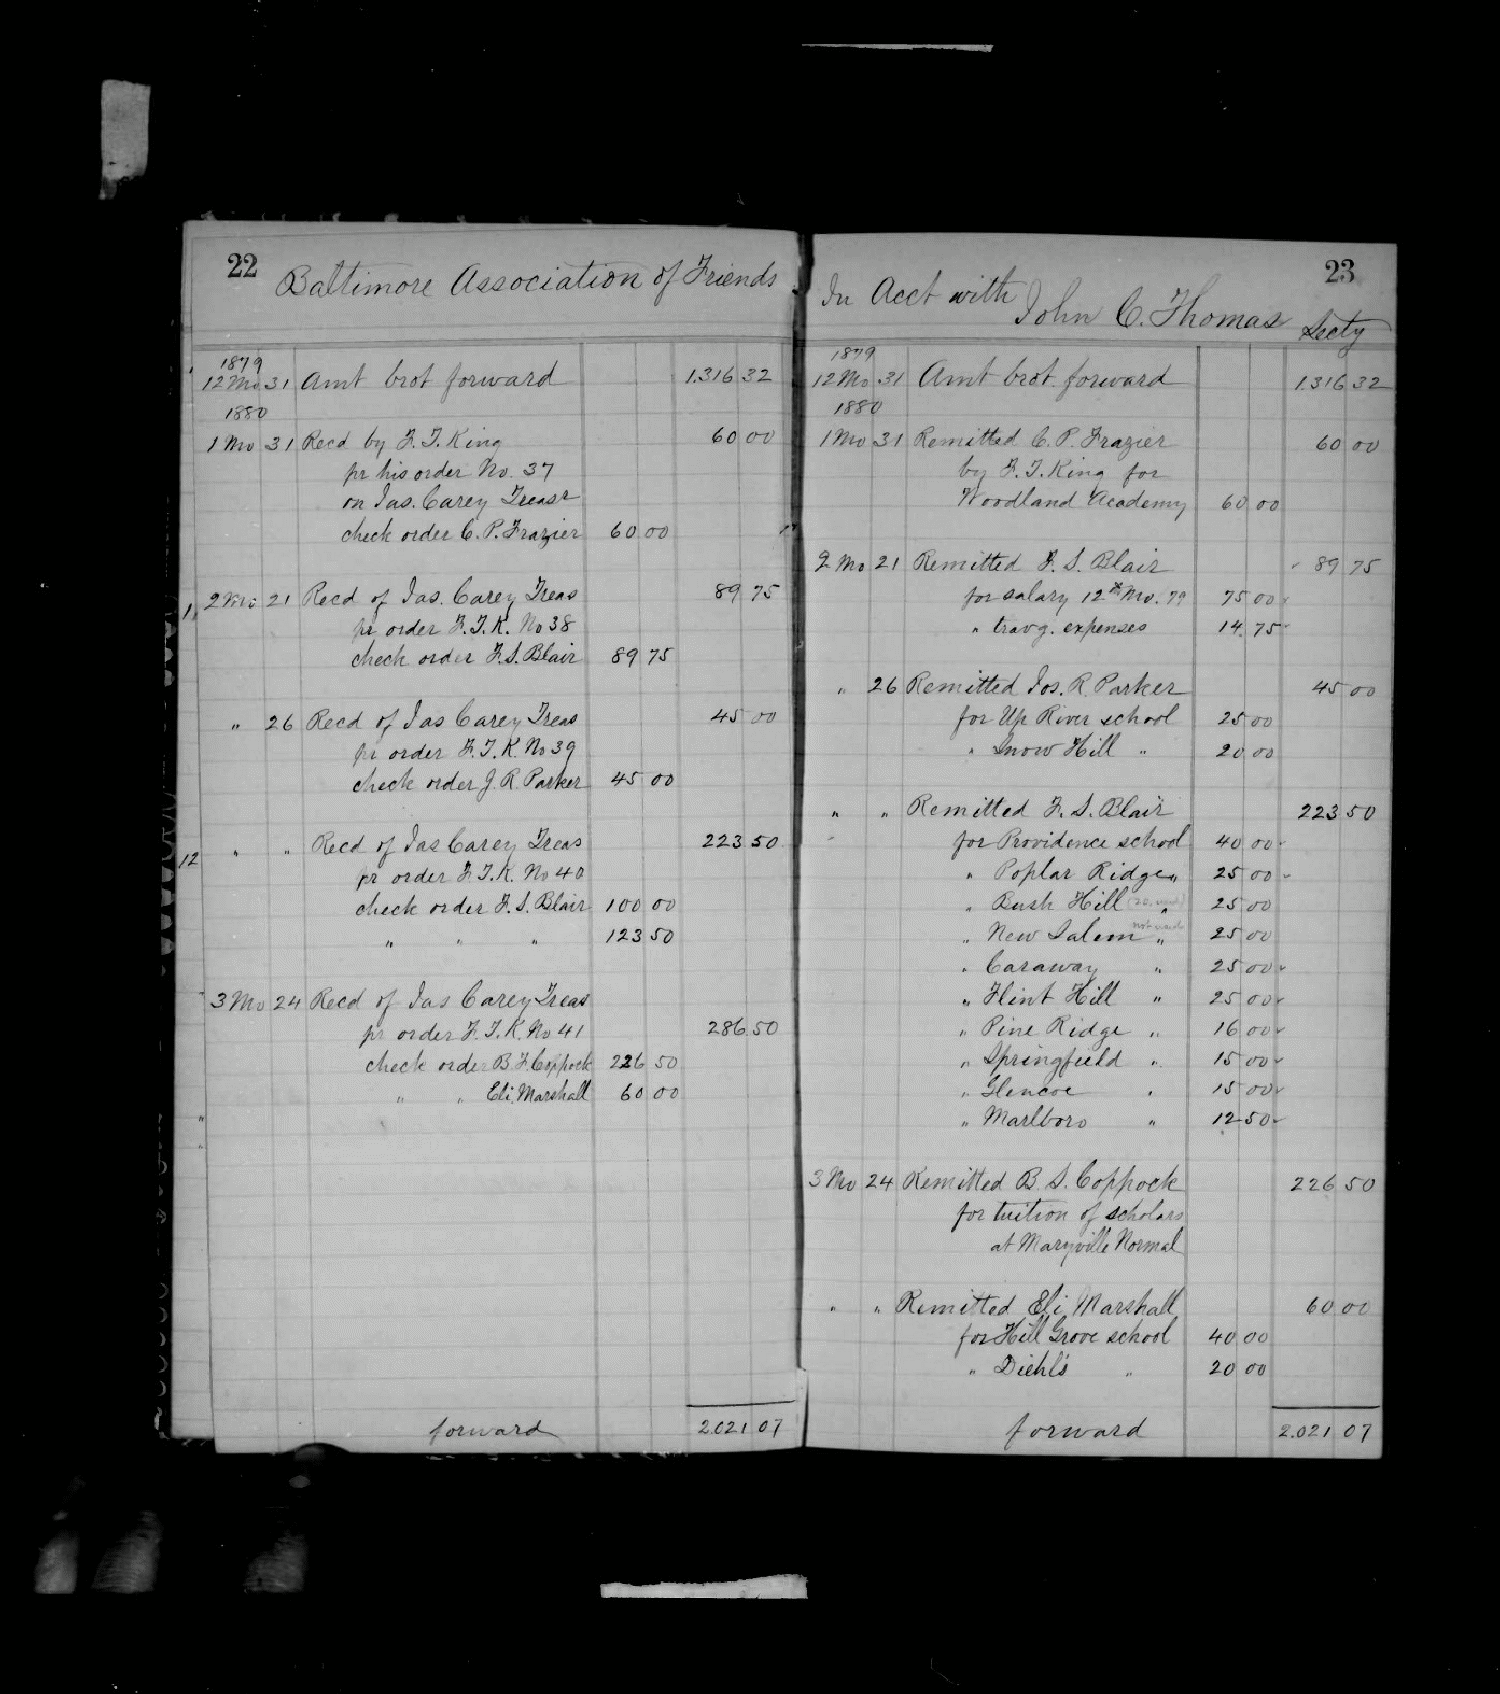 22
Baltimore Association of Friends
1879
12 Mo 31 Amt brot forward 1.316 32
1880
1 Mo 31 Recd by F. T. King 60 00
pr his order No. 37
on Jas. Carey Treasr
check order C. P. Frazier 60 00
2 Mo 21 Recd of Jas. Carey Treas 89 75
pr order F. T. K. No 38
check order F. S. Blair 89 75
" 26 Recd of Jas Carey Treas 45 00
pr order F. T. K. No 39
check order J. R. Parker 45 00
" " Recd of Jas Carey Treas 223 50
pr order F. T. K. No 40
check order F. S. Blair 100 00
" " " 123 50
3 Mo 24 Recd of Jas Carey Treas
pr order F. T. K. No 41 286 50
check order B. F. Coppock 226 50
" " Eli Marshall 60 00
forward 2.021 07
23
In Acct with John C. Thomas Secty
1879
12 Mo 31 Amt brot forward 1.316 32
1880
1 Mo 31 Remitted C. P. Frazier 60 00
by F. T. King for
Woodland Academy 60 00
2 Mo 21 Remitted F. S. Blair 89 75
for salary 12th Mo. 79 75 00
" travg. expenses 14. 75
" 26 Remitted Jos. R. Parker 45 00
for Up River school 25 00
" Snow Hill " 20 00
" " Remitted F. S. Blair 223 50
for Providence school 40 00
" Poplar Ridge " 25 00
" Bush Hill " 25 00
" New Salem " 25 00
" Caraway " 25 00
" Flint Hill " 25 00
" Pine Ridge " 16 00
" Springfield " 15 00
" Glencoe " 15 00
" Marlboro " 12 50
3 Mo 24 Remitted B. S. Coppock 226 50
for tuition of scholars
at Maryville Normal
" " Remitted Eli Marshall 60 00
for Hill Grove school 40 00
" Diehl's " 20 00
forward 2.021 07